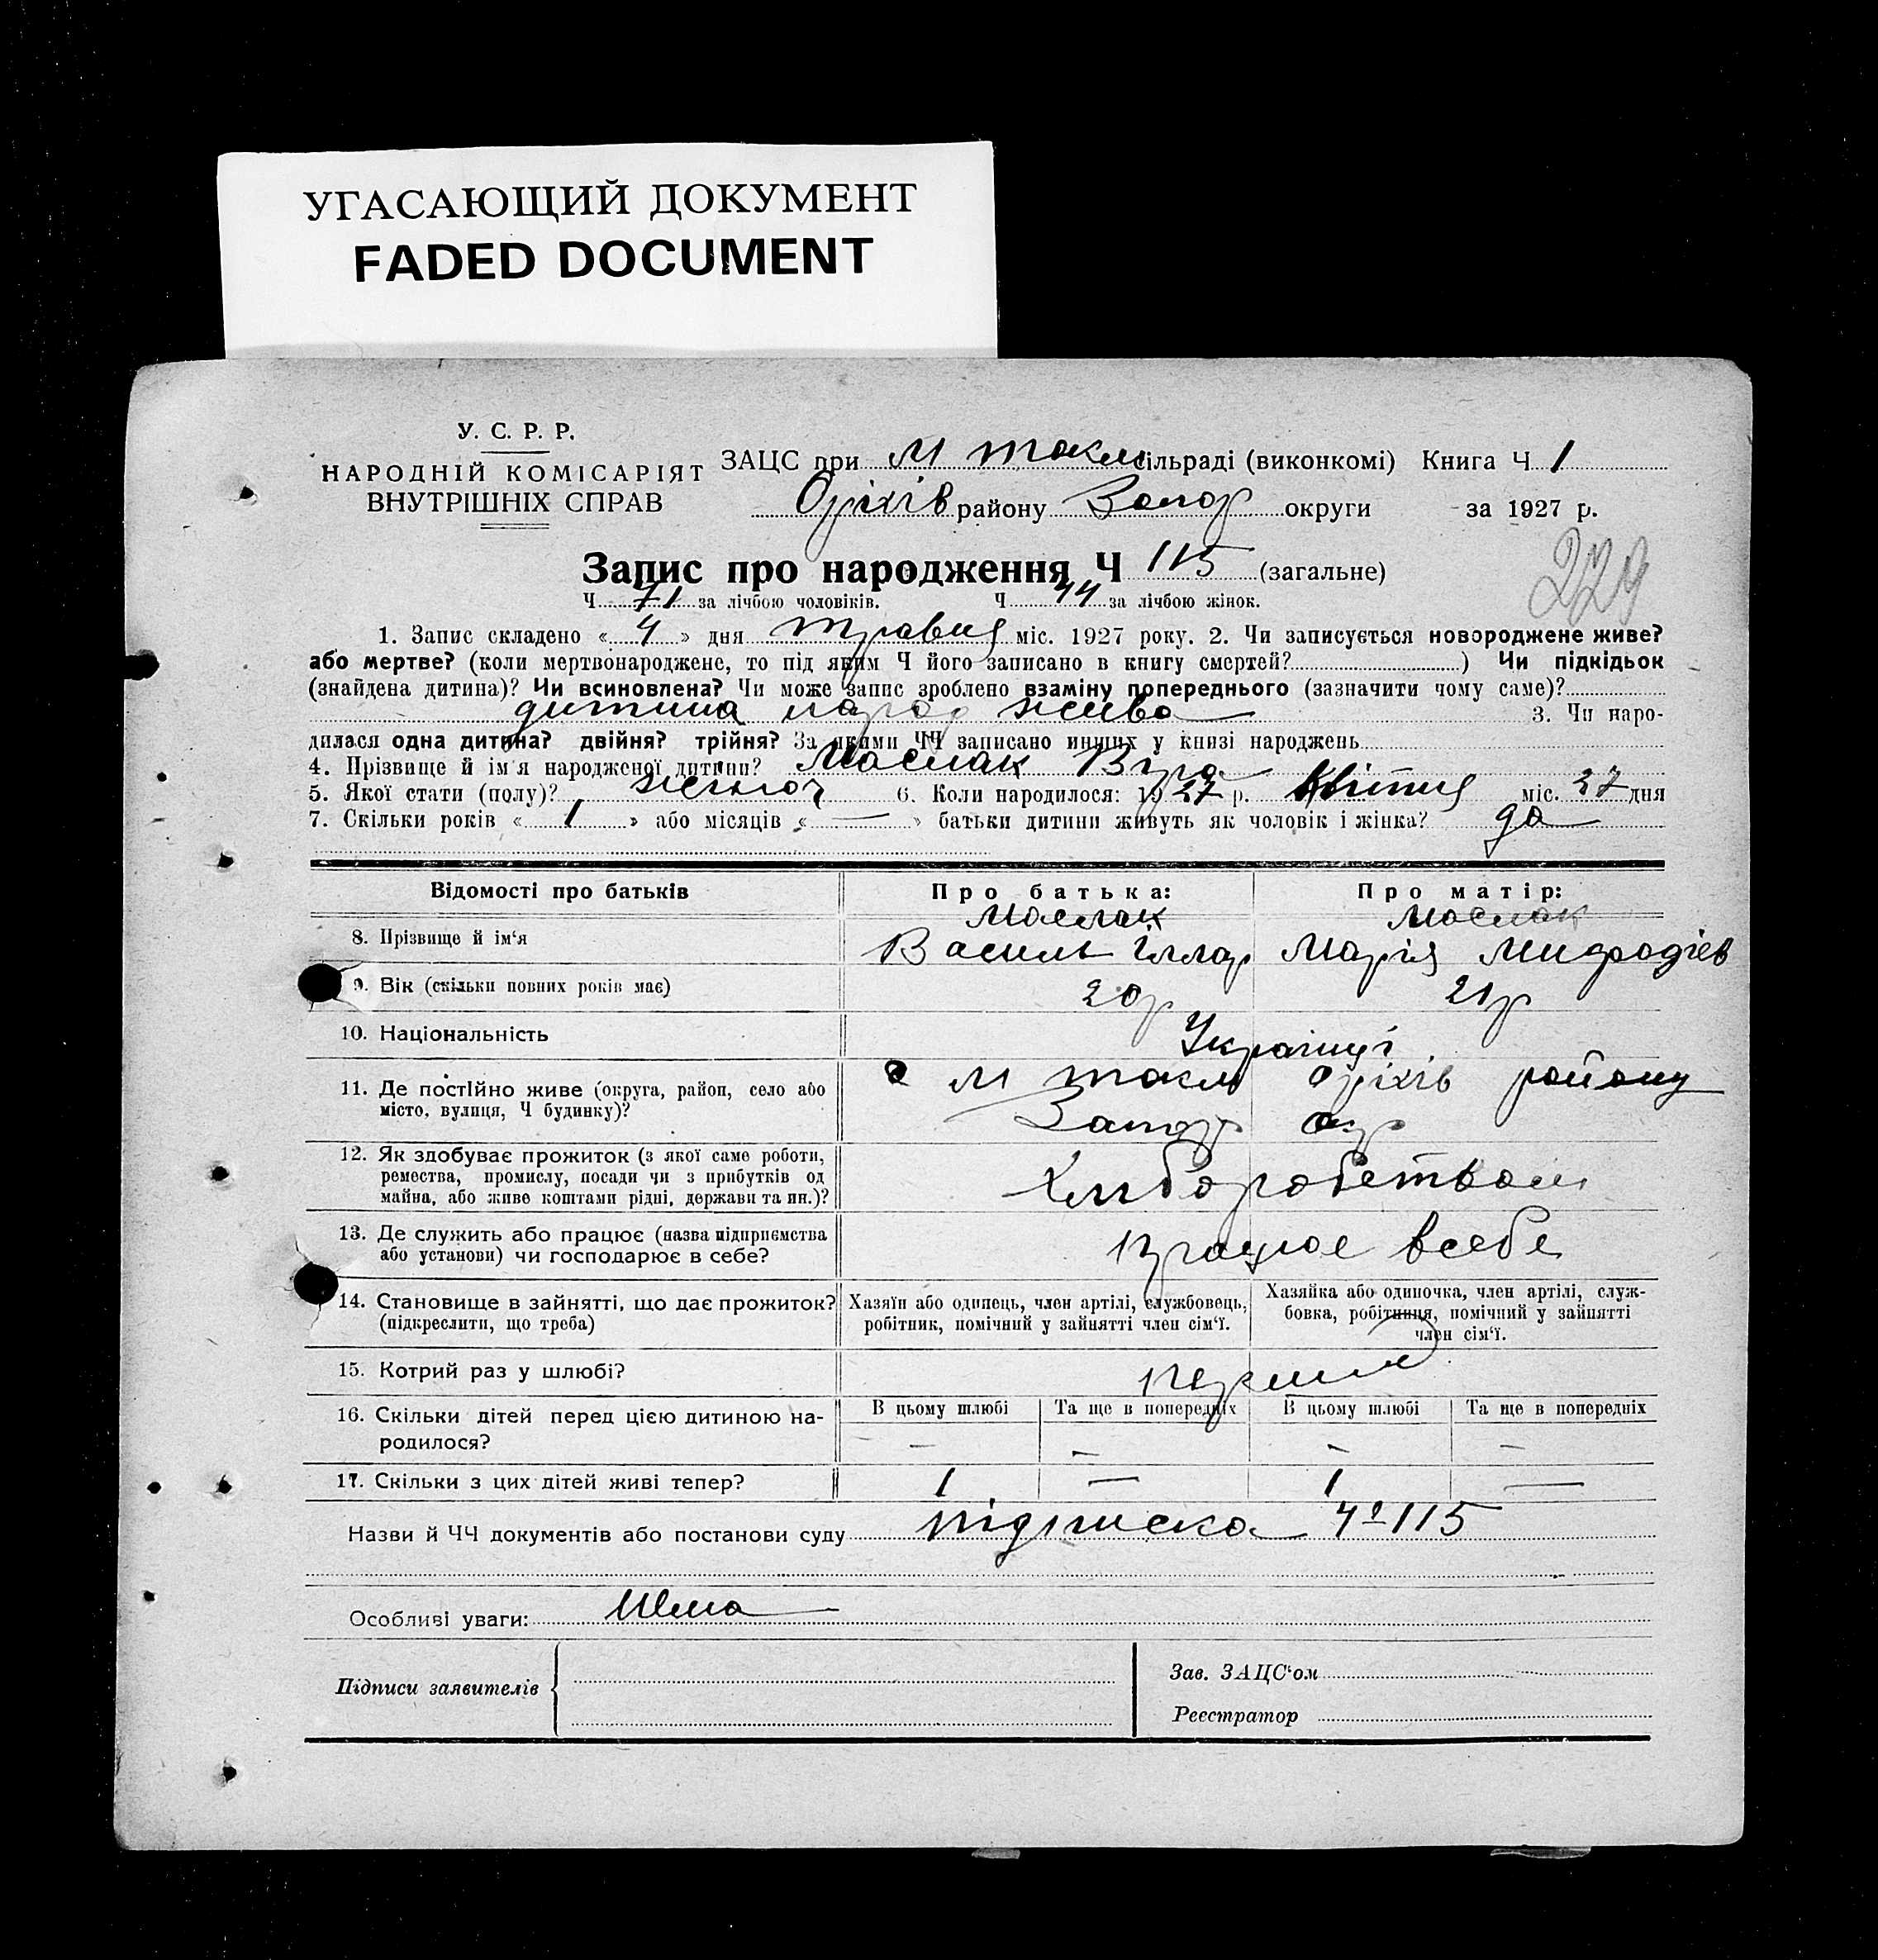 УГАСАЮЩИЙ ДОКУМЕНТ
FADED DOCUMENT
У. С. Р. Р.
НАРОДНІЙ КОМІСАРІЯТ
ВНУТРІШНІХ СПРАВ
ЗАЦС при М Токм сільраді (виконкомі) Книга Ч 1
Оріхів району Запор округи за 1927 р.
229
Запис про народження Ч 115 (загальне)
Ч 71 за лічбою чоловіків. Ч 44 за лічбою жінок.
1. Запис складено « 4 » дня травня міс. 1927 року. 2. Чи записується новороджене живе?
або мертве? (коли мертвонароджене, то під яким Ч його записано в книгу смертей? ) Чи підкідьок
(знайдена дитина)? Чи всиновлена? Чи може запис зроблено взаміну попереднього (зазначити чому саме)?
дитина народ жива 3. Чи наро-
дилася одна дитина? двійня? трійня? За якими ЧЧ записано инших у книзі народжень
4. Прізвище й ім'я народженої дитини? Маслак Віра
5. Якої стати (полу)? жіноч 6. Коли народилося: 1927 р. Квітня міс. 27 дня
7. Скільки років « 1 » або місяців « — » батьки дитини живуть як чоловік і жінка? да
Відомості про батьків Про батька: Про матір:
Маслак Маслак
8. Прізвище й ім‘я Василь Іллар Марія Мифодіев
9. Вік (скільки повних років має) 20р 21р
10. Національність Українці
11. Де постійно живе (округа, район, село або
місто, вулиця, Ч будинку)?
М Токм Оріхів району
Запор окр
12. Як здобуває прожиток (з якої саме роботи,
ремества, промислу, посади чи з прибутків од
майна, або живе коштами рідні, держави та ин.)?
Хліборобством
13. Де служить або працює (назва підприємства
або установи) чи господарює в себе?
працюе всебе
14. Становище в зайнятті, що дає прожиток?
(підкреслити, що треба)
Хазяїн або одинець, член артілі, службовець,
робітник, помічний у зайнятті член сім‘ї.
Хазяйка або одиночка, член артілі, служ-
бовка, робітниця, помічний у зайнятті
член сім‘ї.
15. Котрий раз у шлюбі? перший
16. Скільки дітей перед цією дитиною на-
родилося?
В цьому шлюбі Та ще в попередніх В цьому шлюбі Та ще в попередніх
— — — —
17. Скільки з цих дітей живі тепер? 1 — 1 —
Назви й ЧЧ документів або постанови суду підписка Ч 115
Особливі уваги: Нема
Підписи заявителів
Зав. ЗАЦС‘ом
Реєстратор